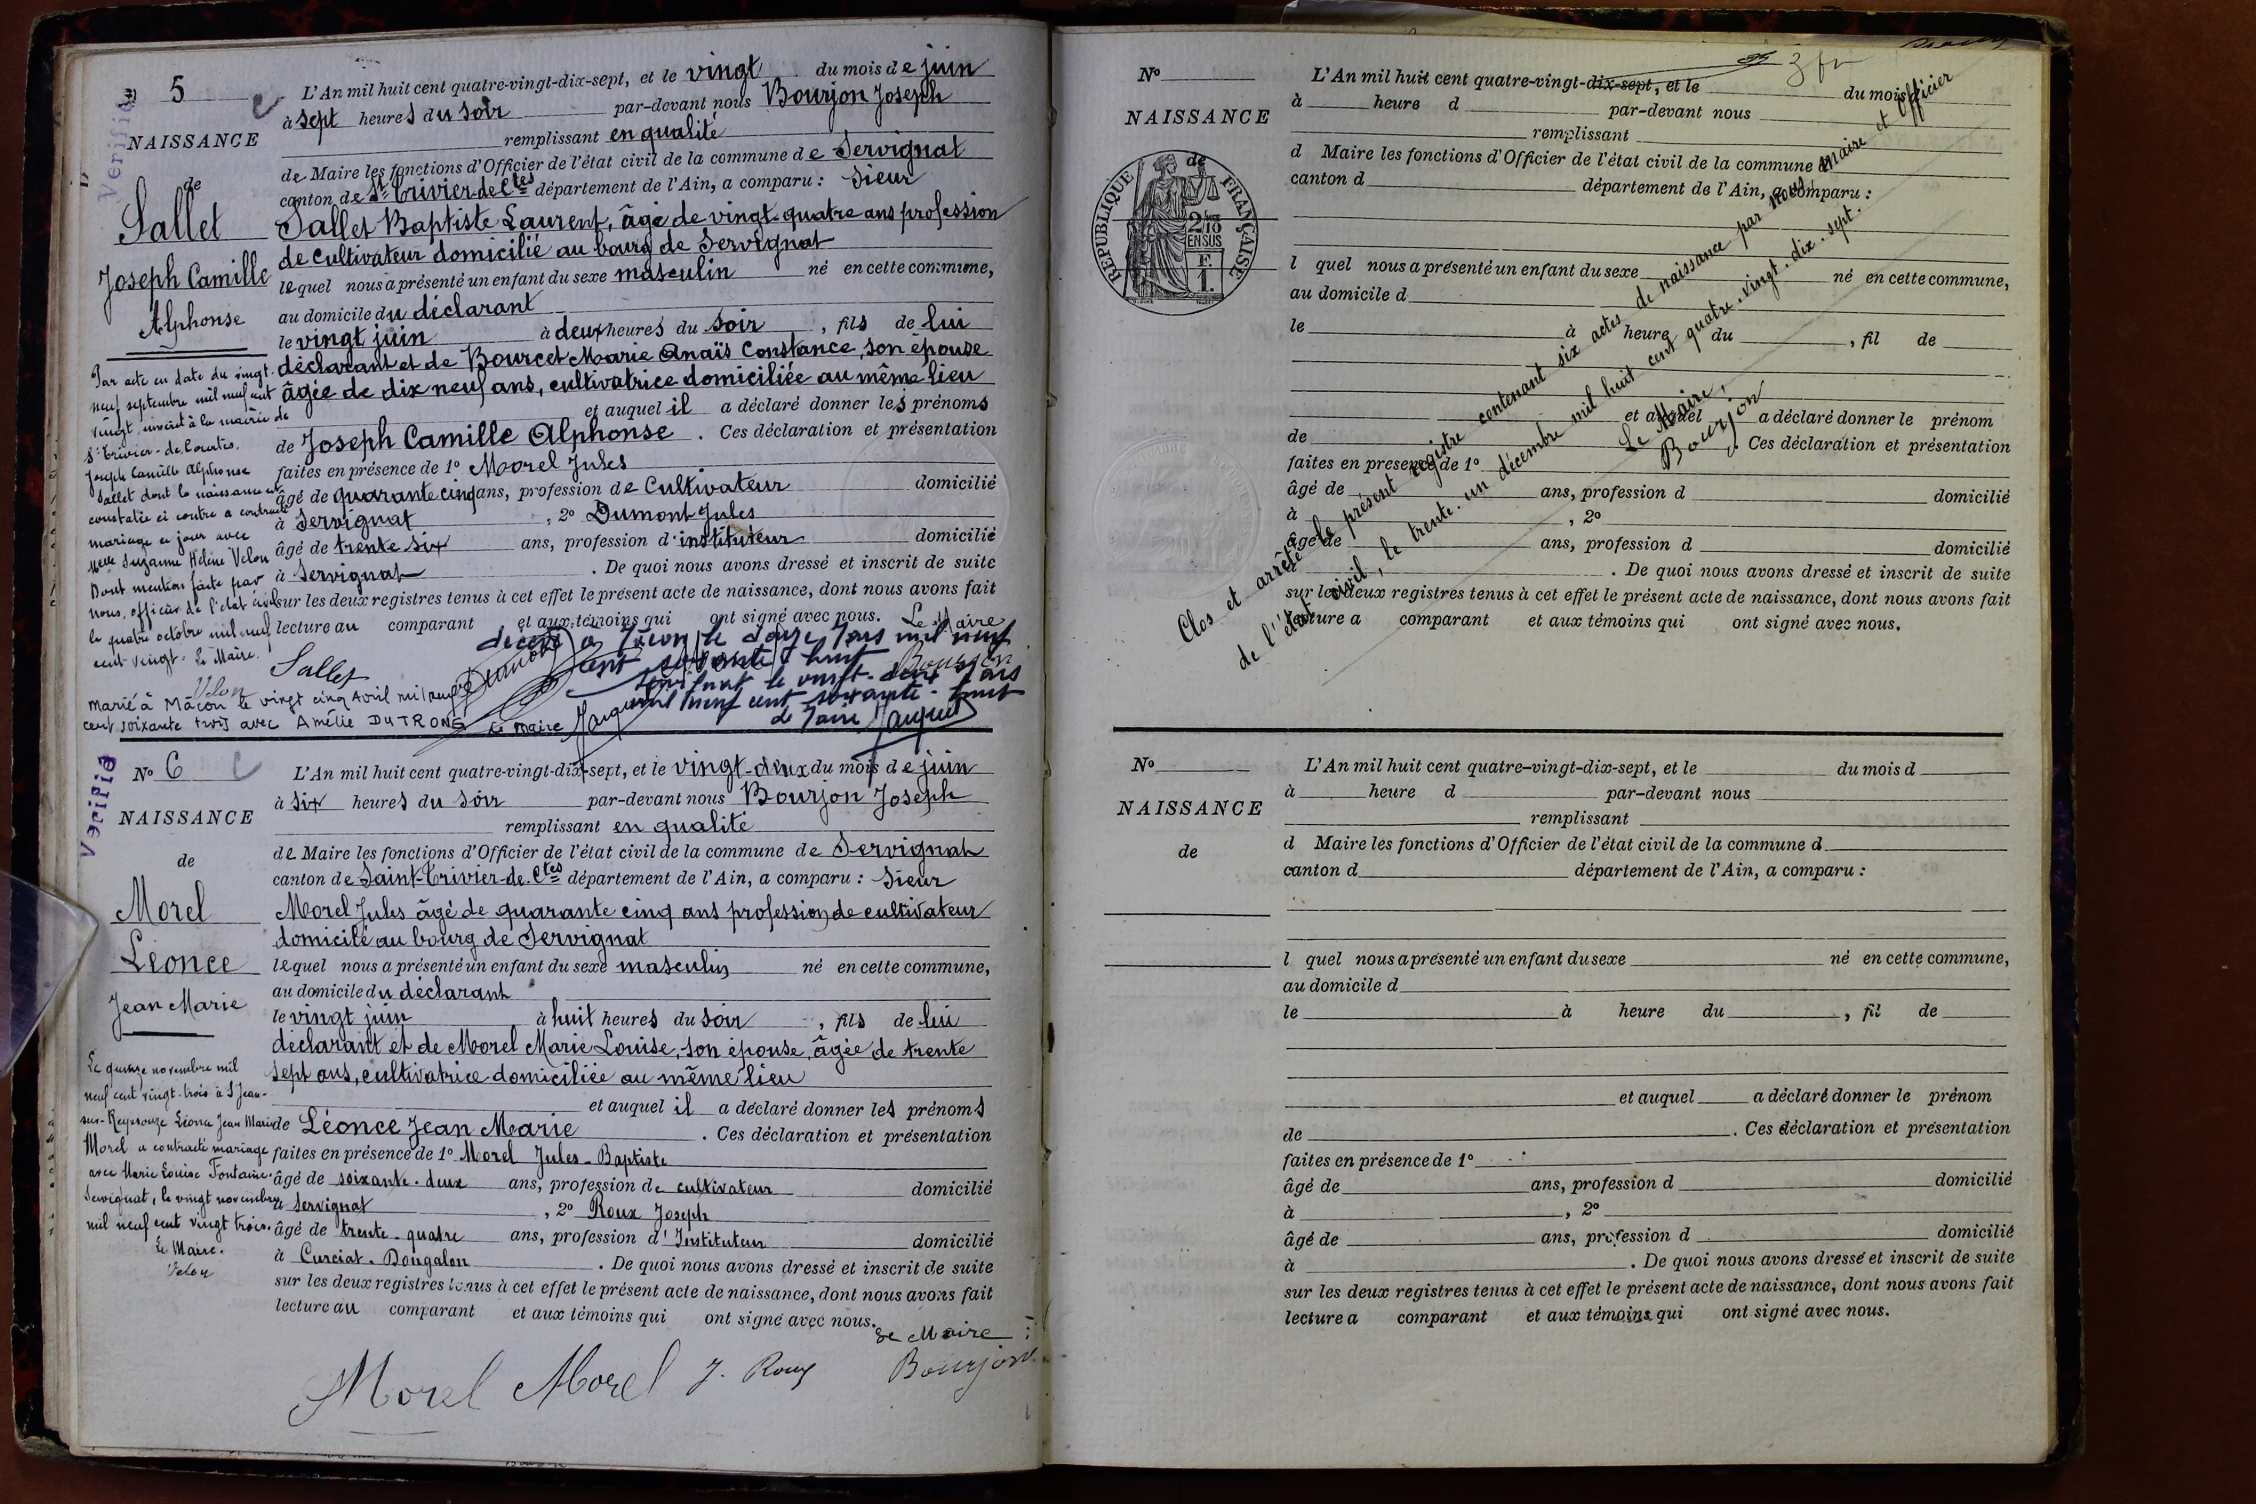 No 5
NAISSANCE
de
Sallet
Joseph Camille
Alphonse
Vérifié
L'An mil huit cent quatre-vingt-dix-sept, et le vingt du mois de juin
à sept heures du soir par-devant nous Bourjon Joseph
remplissant en qualité
de Maire les fonctions d'Officier de l'état civil de la commune de Servignat
canton de St Trivier de Ctes département de l'Ain, a comparu : Sieur
Sallet Baptiste Laurent, âgé de vingt-quatre ans profession
de cultivateur domicilié au bourg de Servignat
lequel nous a présenté un enfant du sexe masculin né en cette commune,
au domicile du déclarant
le vingt juin à deux heures du soir, fils de lui
déclarant et de Bourcet Marie Anaïs Constance, son épouse
âgée de dix neuf ans, cultivatrice domiciliée au même lieu
et auquel il a déclaré donner les prénoms
de Joseph Camille Alphonse. Ces déclaration et présentation
faites en présence de 1º Morel Jules
âgé de quarante cinq ans, profession de Cultivateur domicilié
à Servignat, 2º Dumont Jules
âgé de trente six ans, profession d'instituteur domicilié
à Servignat. De quoi nous avons dressé et inscrit de suite
sur les deux registres tenus à cet effet le présent acte de naissance, dont nous avons fait
lecture au comparant et aux témoins qui ont signé avec nous. Le Maire
Sallet
Bourjon
Par acte en date du vingt
neuf septembre mil neuf cent
vingt, inscrit à la mairie de
St Trivier-de-Courtes.
Joseph Camille Alphonse
Sallet dont la naissance est
constatée ci contre a contracté
mariage ce jour avec
Melle Suzanne Hélène Velon
Dont mention faite par
nous, officier de l'état civil
le quatre octobre mil neuf
cent vingt. Le Maire.
Velon
Marié à Mâcon le vingt cinq Avril mil neuf
cent soixante trois avec Amélie DUTRONG Le Maire
décédé à Mâcon le douze Mars mil neuf
cent soixante huit
Servignat le vingt-deux Mars
mil neuf cent soixante-huit
le Maire
No 6
NAISSANCE
de
Morel
Léonce
Jean Marie
Vérifié
L'An mil huit cent quatre-vingt-dix-sept, et le vingt-deux du mois de juin
à six heures du soir par-devant nous Bourjon Joseph
remplissant en qualité
de Maire les fonctions d'Officier de l'état civil de la commune de Servignat
canton de Saint-Trivier-de-Ctes département de l'Ain, a comparu : Sieur
Morel Jules âgé de quarante cinq ans profession de cultivateur
domicilé au bourg de Servignat
lequel nous a présenté un enfant du sexe masculin né en cette commune,
au domicile du déclarant
le vingt juin à huit heures du soir, fils de lui
déclarant et de Morel Marie Louise, son épouse, âgée de trente
sept ans, cultivatrice domiciliée au même lieu
et auquel il a déclaré donner les prénoms
de Léonce Jean Marie. Ces déclaration et présentation
faites en présence de 1º Morel Jules-Baptiste
âgé de soixante-deux ans, profession de cultivateur domicilié
à Servignat, 2º Roux Joseph
âgé de trente-quatre ans, profession d'Instituteur domicilié
à Curciat-Dongalon. De quoi nous avons dressé et inscrit de suite
sur les deux registres tenus à cet effet le présent acte de naissance, dont nous avons fait
lecture au comparant et aux témoins qui ont signé avec nous.
Le Maire :
Morel Morel J. Roux Bourjon
Le quinze novembre mil
neuf cent vingt-trois à St Jean-
sur-Reyssouze Léonce Jean Marie
Morel a contracté mariage
avec Marie Louise Fontaine.
Servignat, le vingt novembre
mil neuf cent vingt trois.
Le Maire.
Velon
3 fr
No
NAISSANCE
de
RÉPUBLIQUE FRANÇAISE
2/10
EN SUS
F.
1.
L'An mil huit cent quatre-vingt-dix-sept, et le du mois d
à heure d par-devant nous
remplissant
d Maire les fonctions d'Officier de l'état civil de la commune d
canton d département de l'Ain, a comparu :
l quel nous a présenté un enfant du sexe né en cette commune,
au domicile d
le à heure du, fil de
et auquel a déclaré donner le prénom
de. Ces déclaration et présentation
faites en présence de 1º
âgé de ans, profession d domicilié
à, 2º
âgé de ans, profession d domicilié
à. De quoi nous avons dressé et inscrit de suite
sur les deux registres tenus à cet effet le présent acte de naissance, dont nous avons fait
lecture a comparant et aux témoins qui ont signé avec nous.
Clos et arrêté le présent registre contenant six actes de naissance par nous Maire et Officier
de l'état civil, le trente-un décembre mil huit cent quatre-vingt-dix-sept.
Le Maire,
Bourjon
No
NAISSANCE
de
L'An mil huit cent quatre-vingt-dix-sept, et le du mois d
à heure d par-devant nous
remplissant
d Maire les fonctions d'Officier de l'état civil de la commune d
canton d département de l'Ain, a comparu :
l quel nous a présenté un enfant du sexe né en cette commune,
au domicile d
le à heure du, fil de
et auquel a déclaré donner le prénom
de. Ces déclaration et présentation
faites en présence de 1º
âgé de ans, profession d domicilié
à, 2º
âgé de ans, profession d domicilié
à. De quoi nous avons dressé et inscrit de suite
sur les deux registres tenus à cet effet le présent acte de naissance, dont nous avons fait
lecture a comparant et aux témoins qui ont signé avec nous.